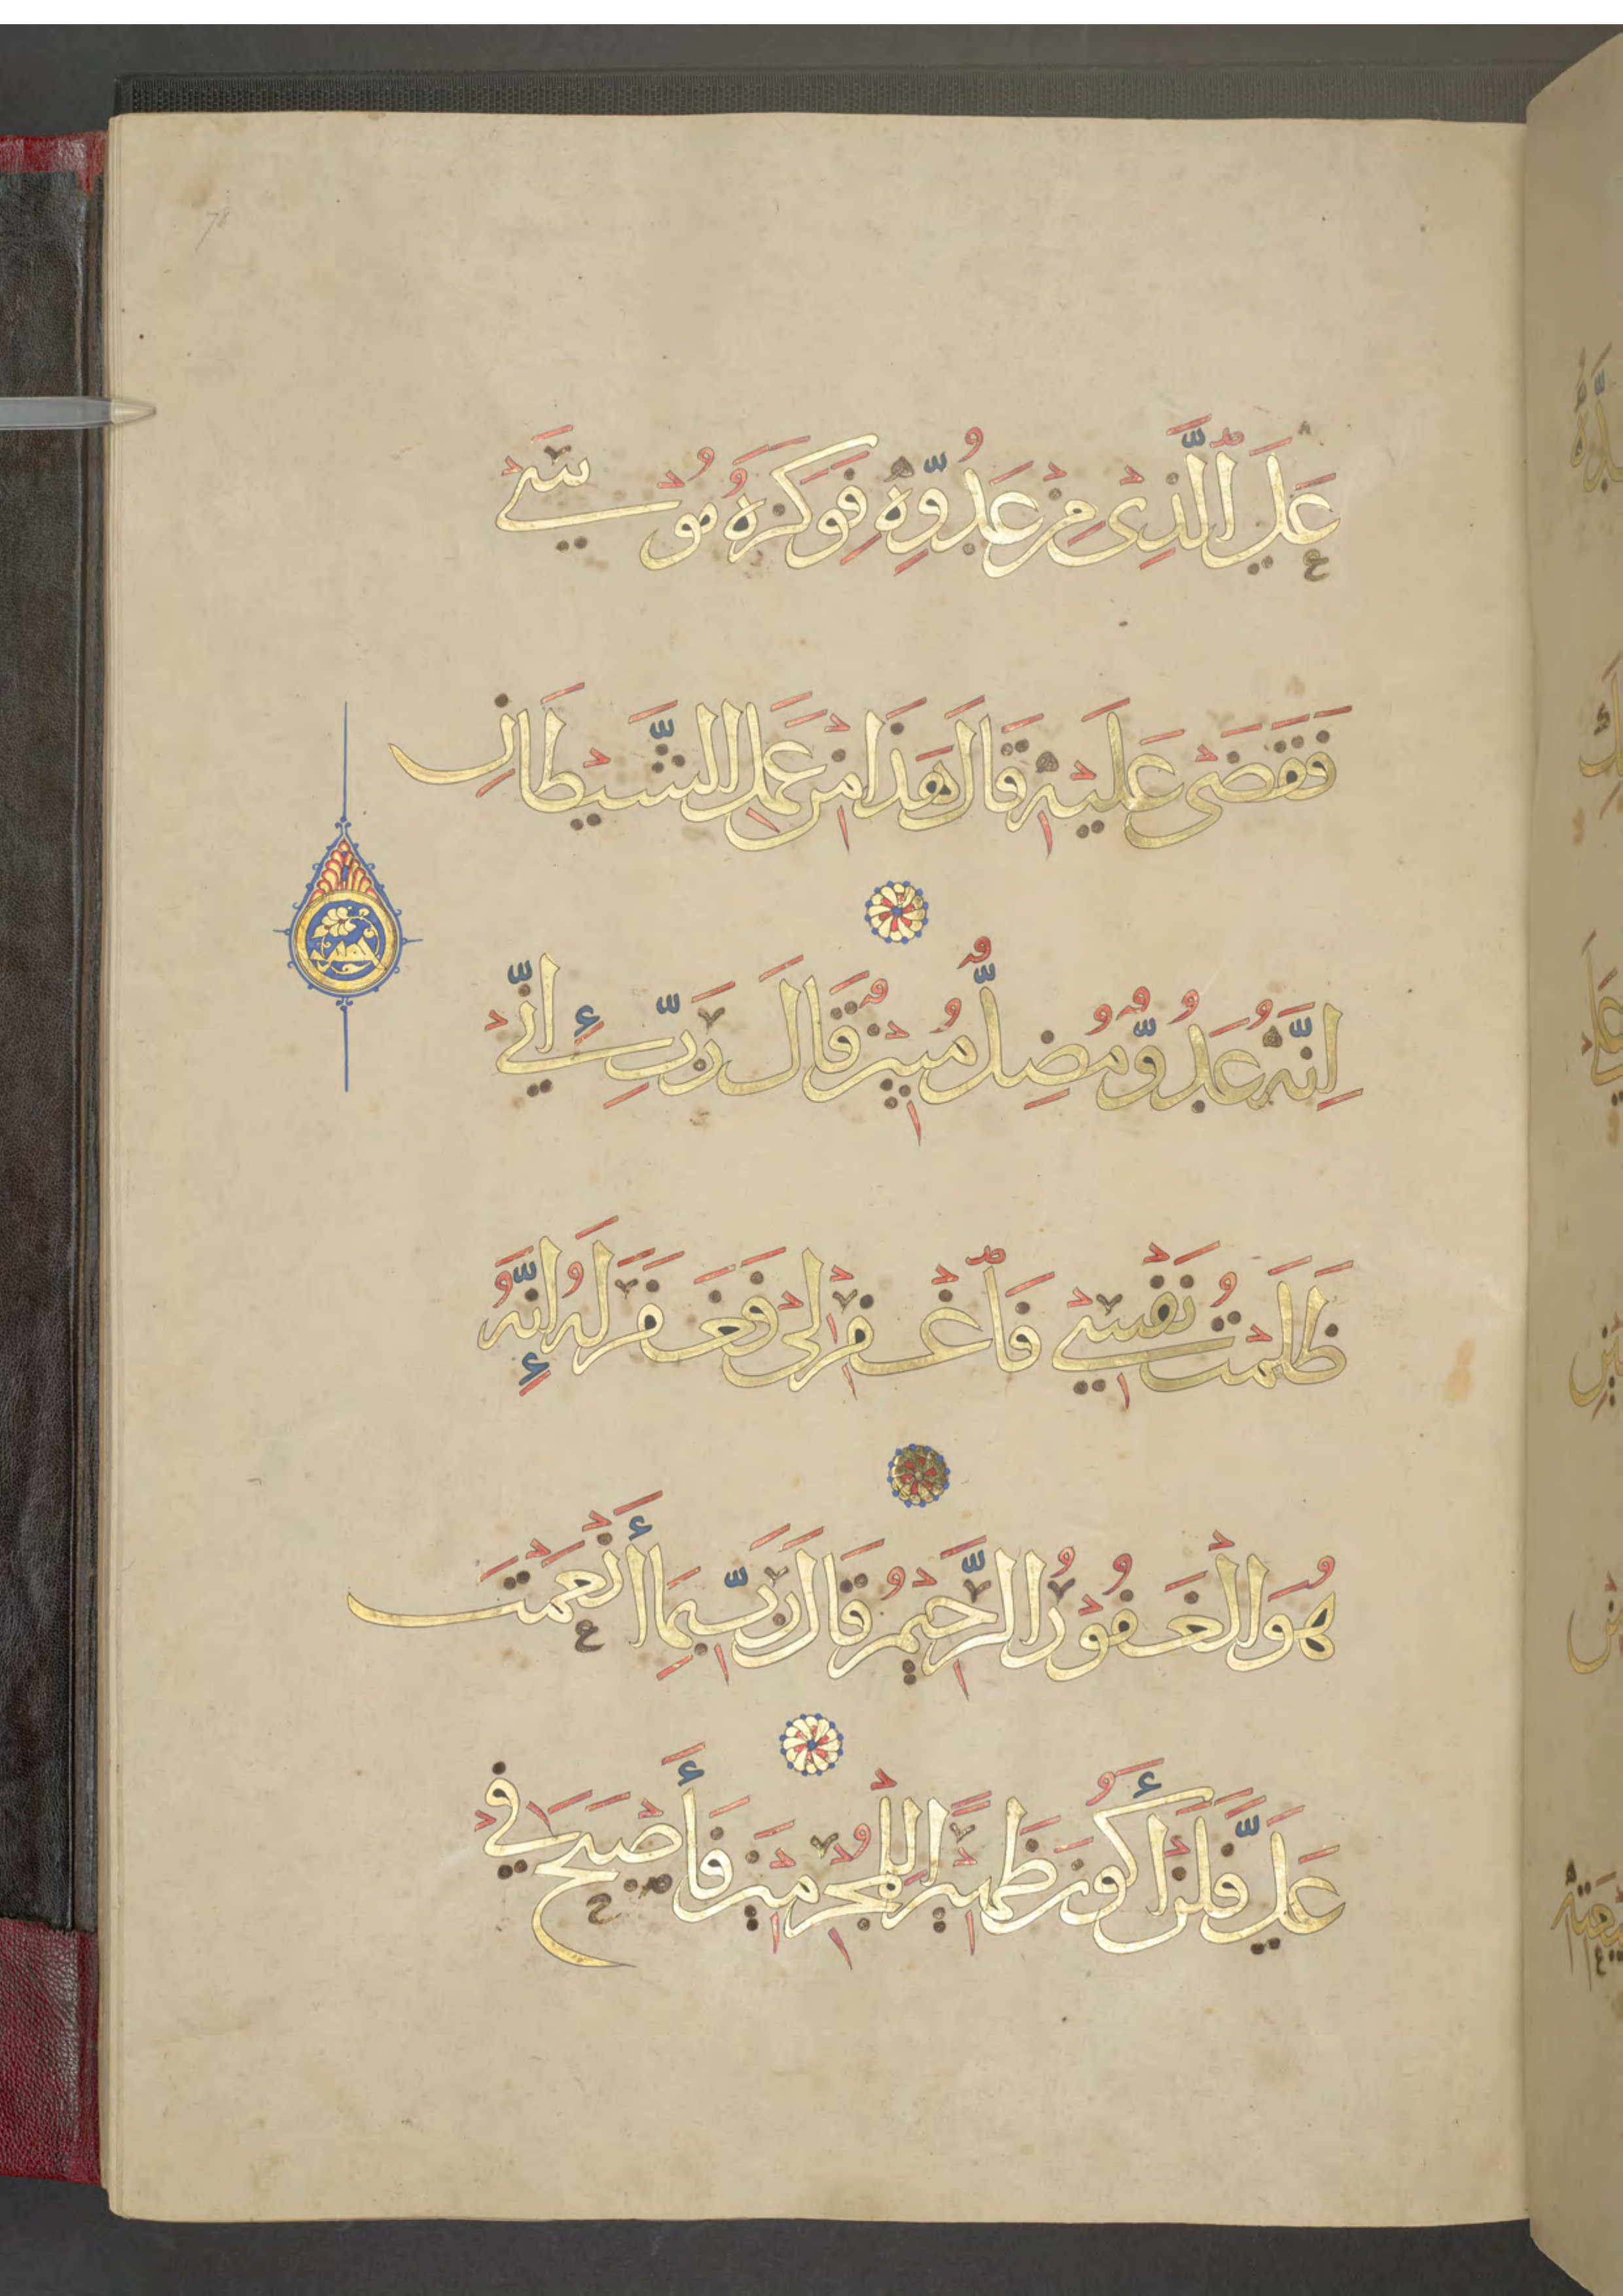 78
عَلَى ٱلَّذِى مِنْ عَدُوِّهِ فَوَكَزَهُ مُوسَىٰ
فَقَضَىٰ عَلَيْهِ قَالَ هَذَا مِنْ عَمَلِ الشَّيْطَانِ
إِنَّهُ عَدُوٌّ مُضِلٌّ مُبِينٌ قَالَ رَبِّ إِنِّي
ظَلَمْتُ نَفْسِي فَٱغْفِرْ لِي فَغَفَرَ لَهُ إِنَّهُ
هُوَ الْغَفُورُ الرَّحِيمُ قَالَ رَبِّ بِمَا أَنْعَمْتَ
عَلَيَّ فَلَنْ أَكُونَ ظَهِيرًا لِلْمُجْرِمِينَ فَأَصْبَحَ فِي